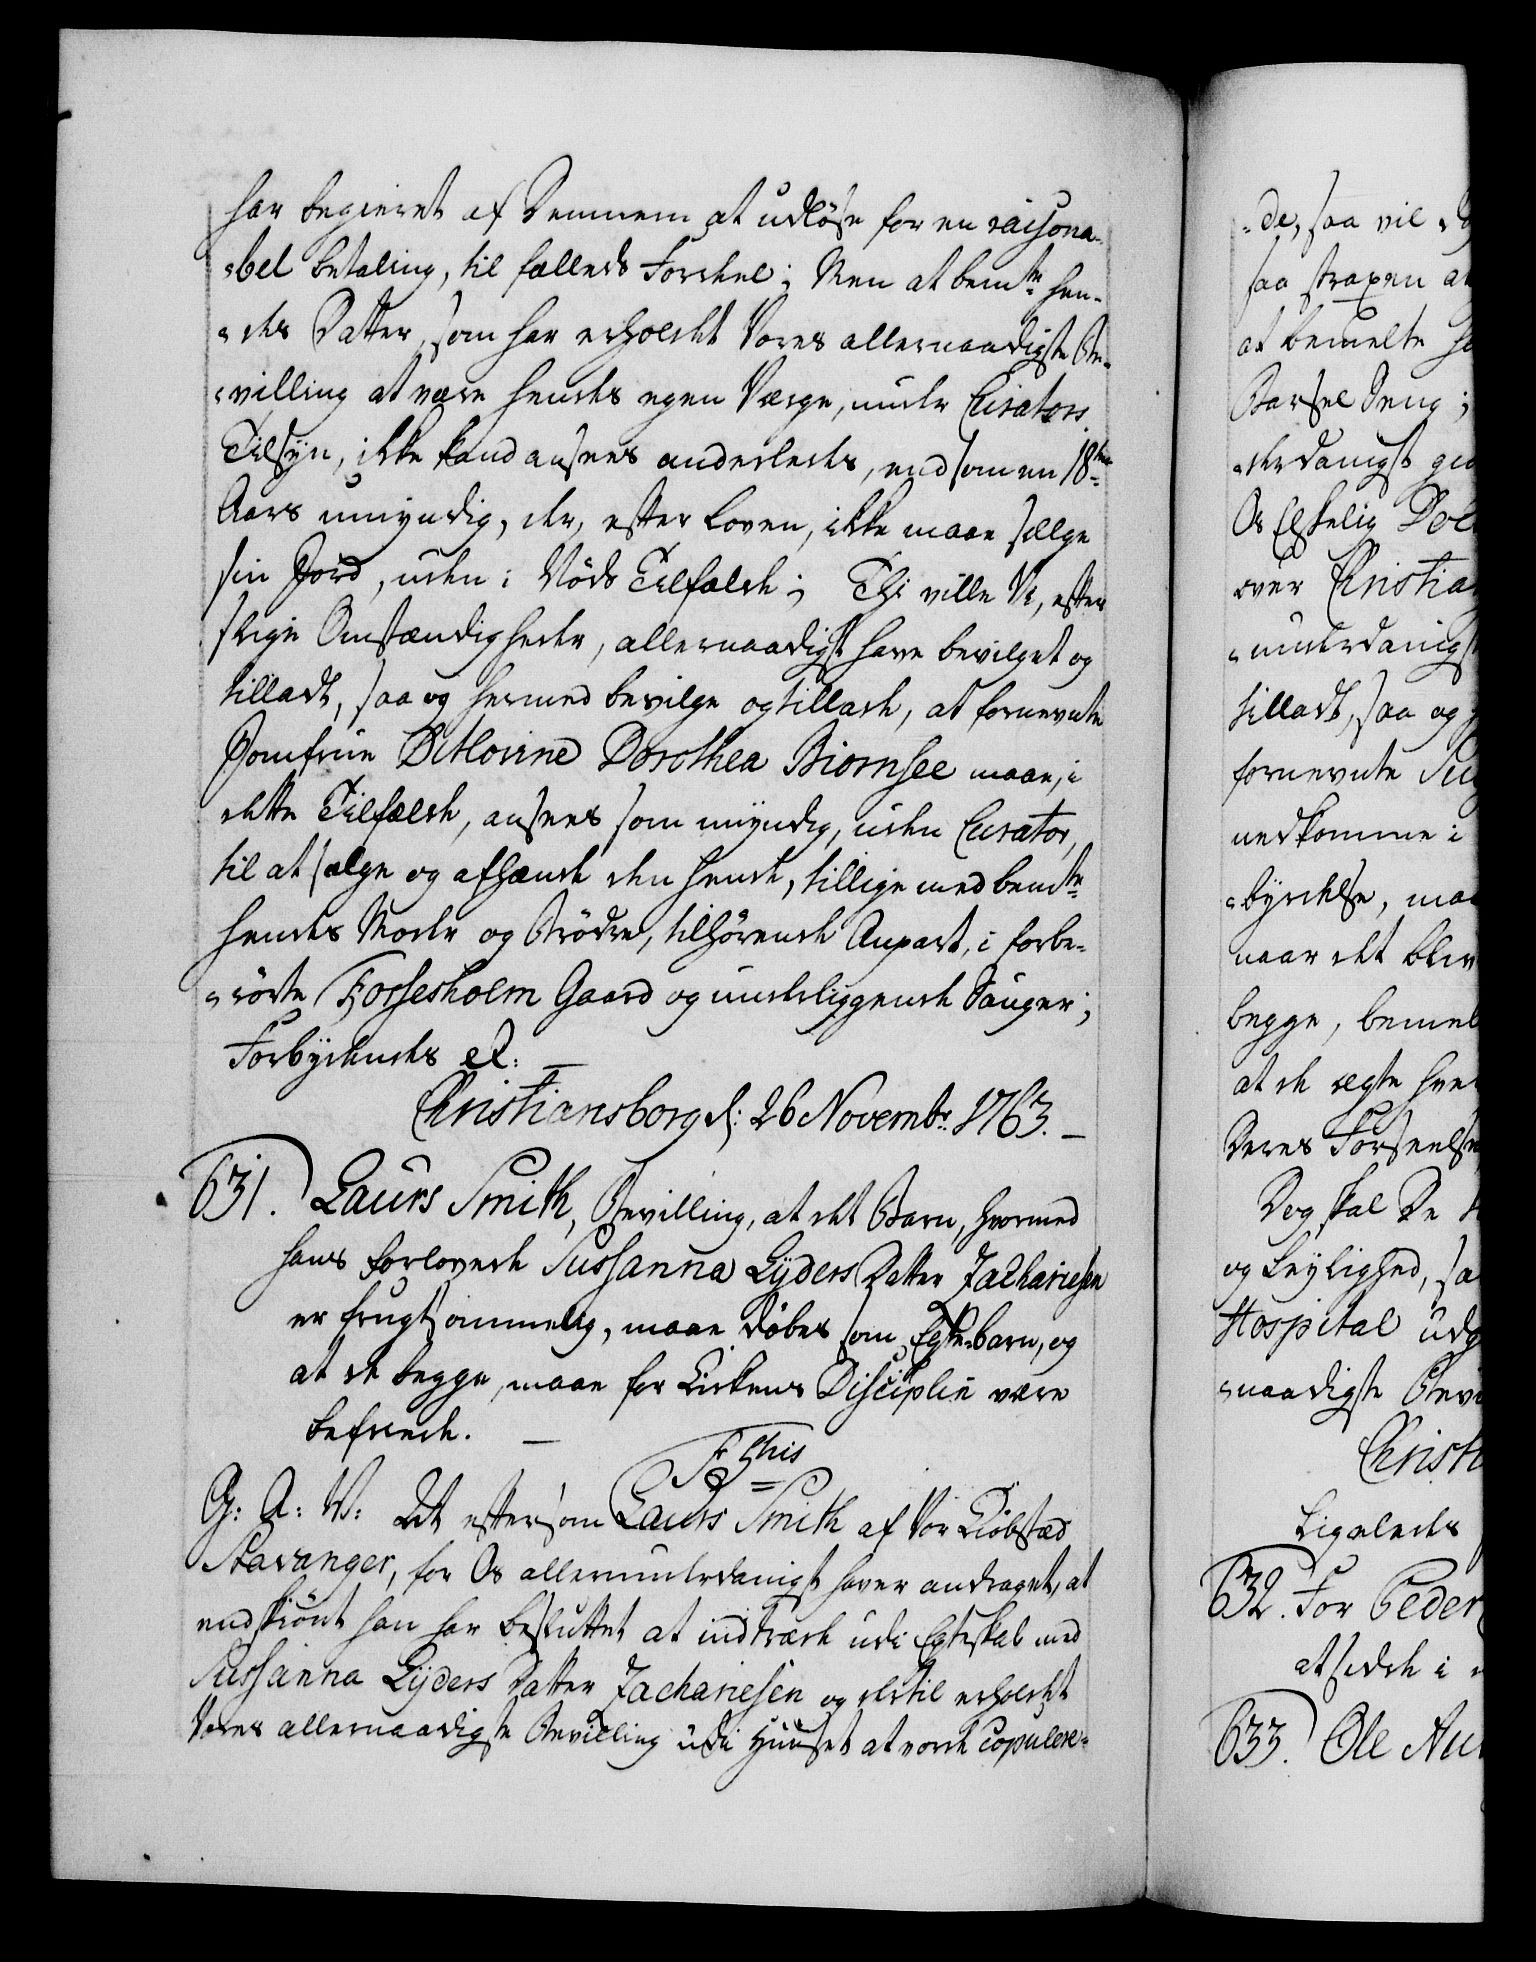 har begieret af Dennem at udløse for en raisona-
-bel betaling, til fælleds Fordeel; Men at bemte hen-
-des Datter, som har erholdet Vores allernaadigste Be-
-villing at være hendes egen Værge, under Curators
Tilsyn, ikke kand ansees anderledes, end som en 18ten
Aars umyndig, der, efter Loven, ikke maae sælge
sin Jord, uden i Nöds Tilfælde; Thi ville Vi, efter
slige Omstændigheder, allernaadigst have bevilget og
tilladt, saa og hermed bevilge og tillade, at fornevnte
Jomfrue Ditlovine Dorothea Biornsee maae, i
dette Tilfælde, ansees som myndig, uden Curator,
til at sælge og afhænde den hende, tillige med bemte
hendes Moder og Brödre, tilhörende Anpart, i forbe-
-rörte Fossesholm Gaard og underliggende Sauger;
Forbydendes et: —
Christiansborg d: 26 Novembr: 1763. —
631. Laurs Smith, Bevilling, at det Barn, hvormed
hans forlovede Sussanna Lyders Datter Zachariesen
er frugtsommelig, maae döbes som Egte-barn, og
at de begge, maae for Kirkens Disciplin være
befriede. —
F 5this
G: A: V: At eftersom Laurs Smith af Vor Kiöbstæd
Stavanger, for Os allerunderdanigst haver andraget, at
endskiönt han har besluttet at indtræde udi Egteskab med
Sussanna Lyders Datter Zachariesen og dertil erholdet
Vores allernaadigste Bevilling udi Huuset at vorde copulere-
-de, saa vil
saa straxen
at bemelte
Barsel Seng;
-derdanigst
Os Elskelig
over Christia
-underdanigst
tilladt, saa og
fornevnte
nedkomme i
-byrdelse,
naar det bliv
begge,
at de ægte
Deres Forseelse
Dog skal De
og Leylighed, sa
Hospital udg
-naadigste Bevi
Christi
Ligeledes
632. For Peder
at sidde i
633. Ole